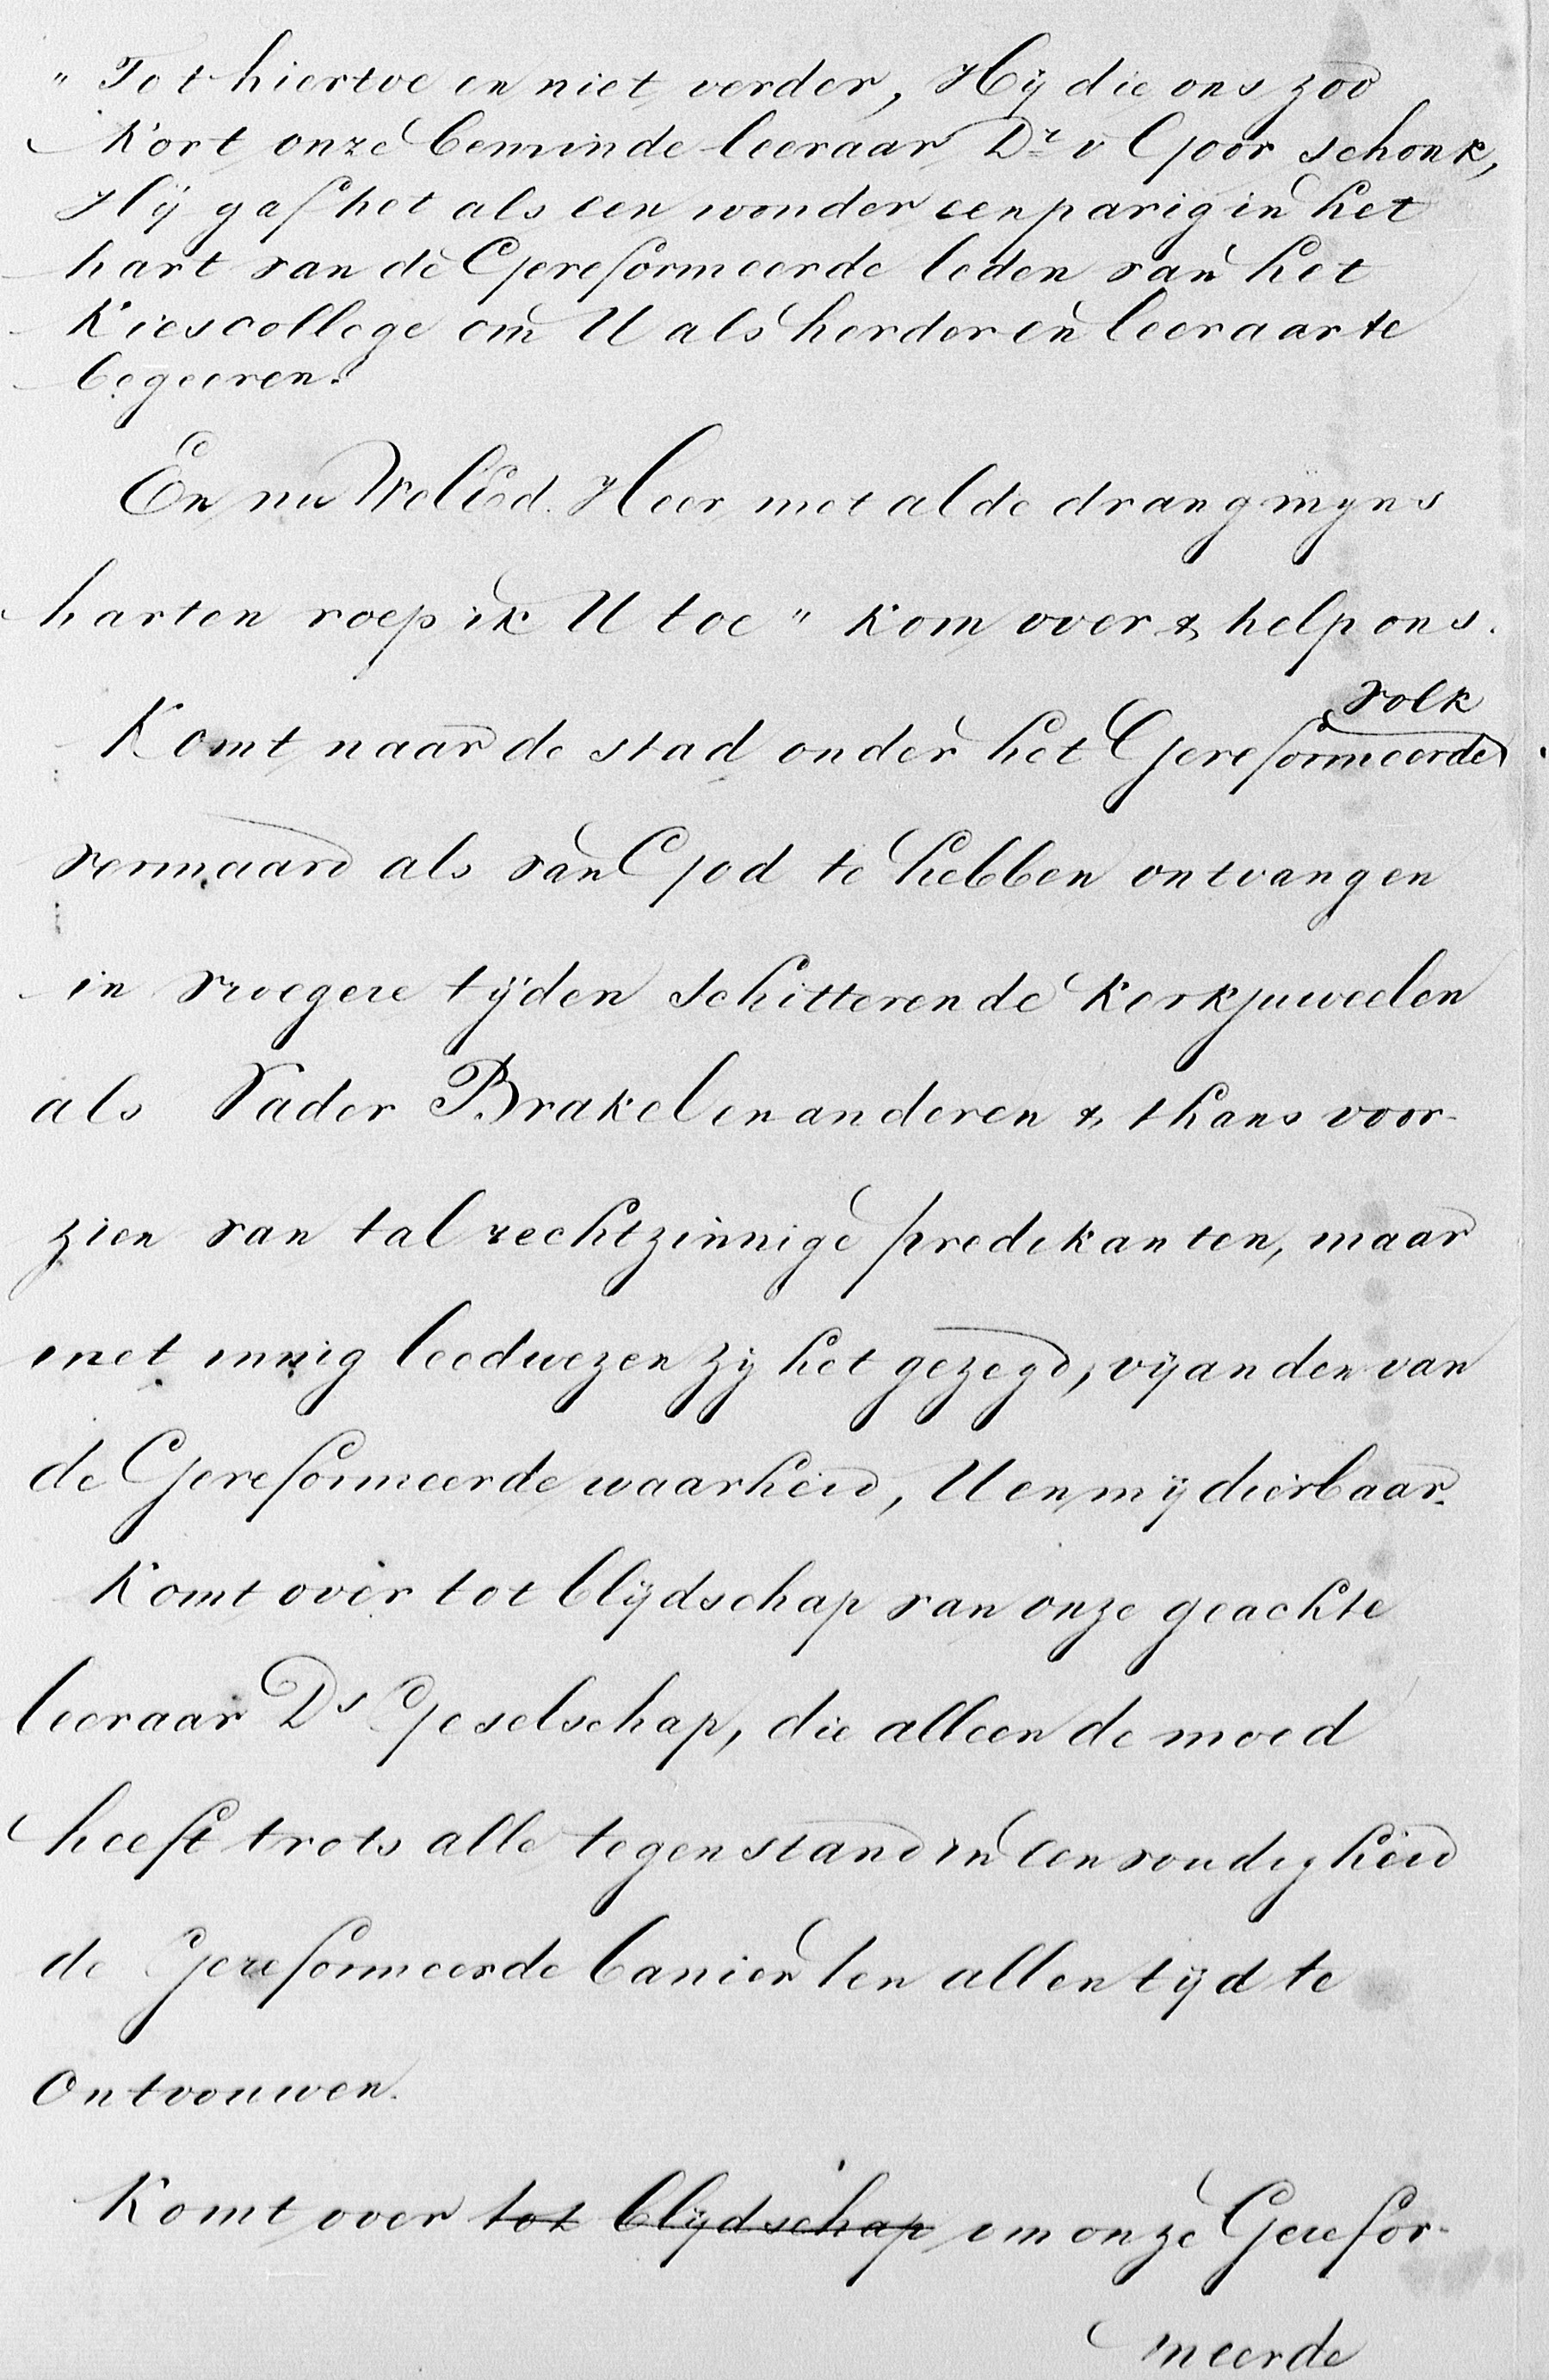 " Tot hiertoe en niet verder, Hij die ons zoo
kort onze beminde leeraar Dr v Goor schonk,
Hij gaf het als een wonder eenparig in het
hart van de Gereformeerde leden van het
Kiescollege om U als herder en leeraar te
begeeren.
En nu WelEd. Heer met al de drang mijns
harten roep ik U toe " kom over & help ons.
volk
Komt naar de stad onder het Gereformeerde
vermaard als van God te hebben ontvangen
in vroegere tijden schitterende kerkjuweelen
als Vader Brakel en anderen & thans voor-
zien van tal rechtzinnige predikanten, maar
met innig leedwezen zij het gezegd, vijanden van
de Gereformeerde waarheid, U en mij dierbaar.
Komt over tot blijdschap van onze geachte
leeraar Ds Geselschap, die alleen de moed
heeft trots alle tegenstand in eenvoudigheid
de Gereformeerde banier ten allen tijd te
Ontvouwen.
Komt over tot blijdschap om onze Gerefor-
meerde